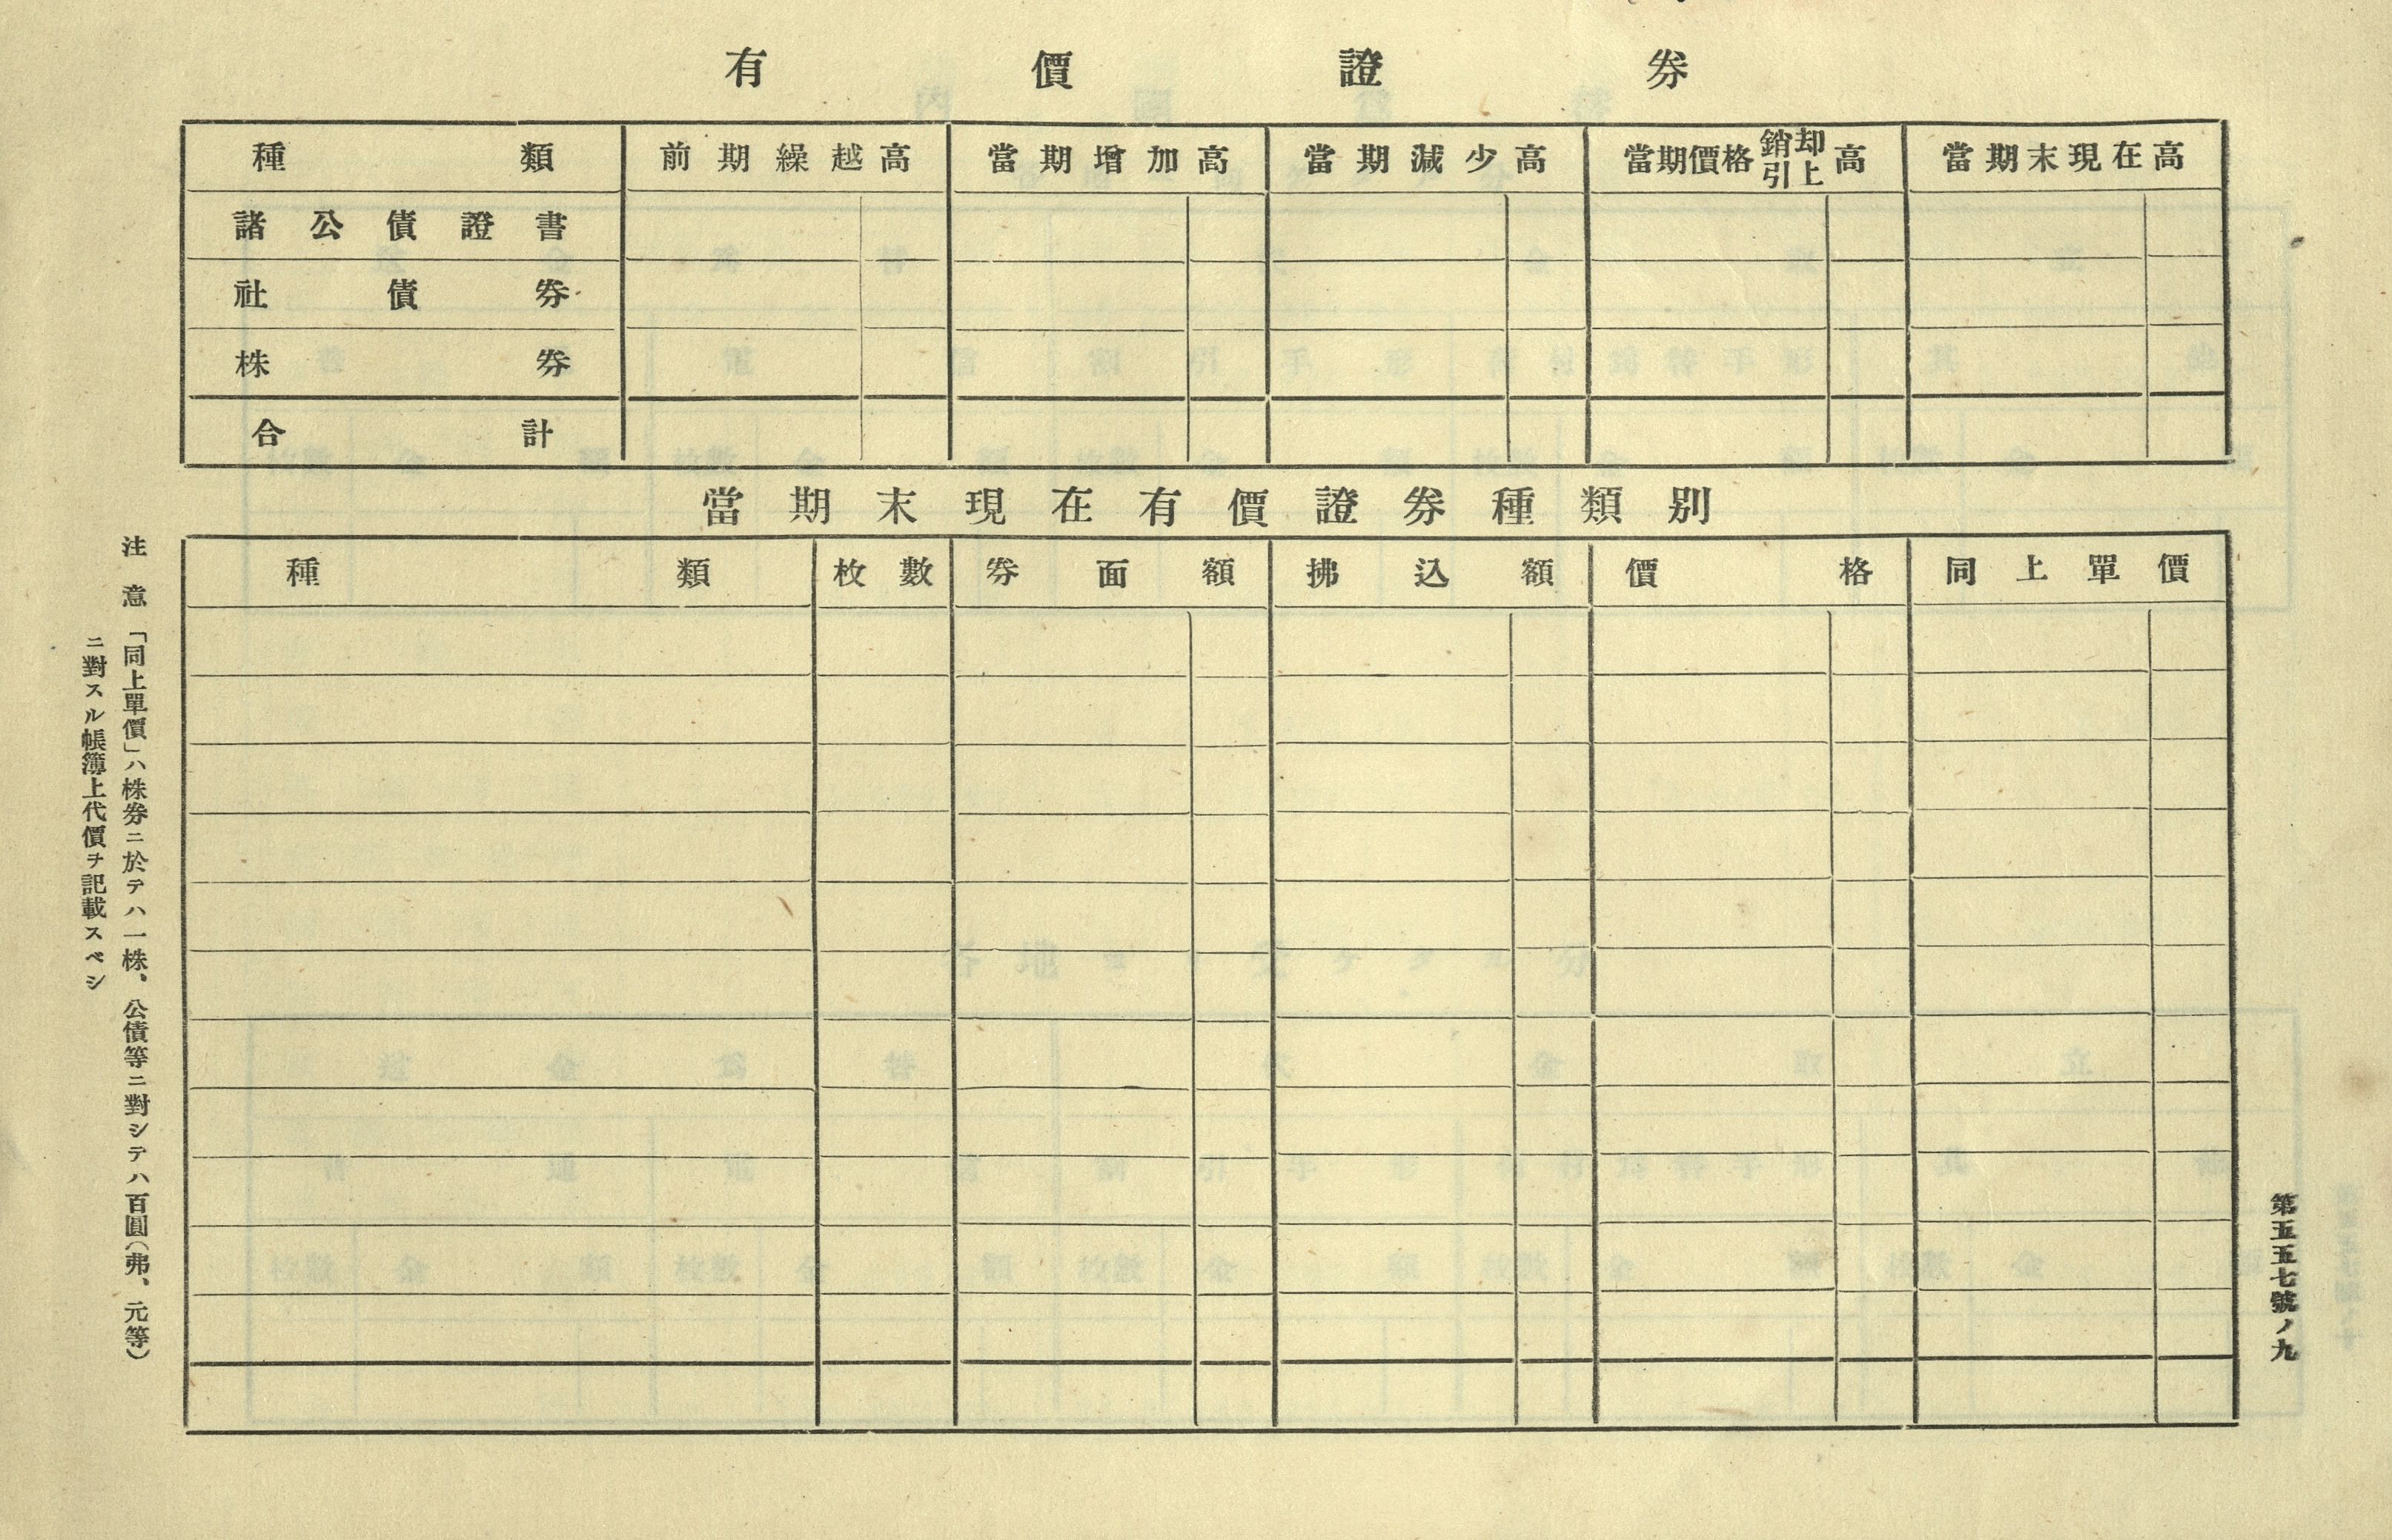 有價證券
種類 前期繰越高 當期增加高 當期減少高 當期價格銷却引上高 當期末現在高
諸公債證書
社債券
株券
合計
當期末現在有價證券種類別
種類 枚數 券面額 拂込額 價格 同上單價
第五五七號ノ九
注意 「同上單價」ハ株券ニ於テハ一株、公債等ニ對シテハ百圓(弗、元等)
ニ對スル帳簿上代價ヲ記載スベシ